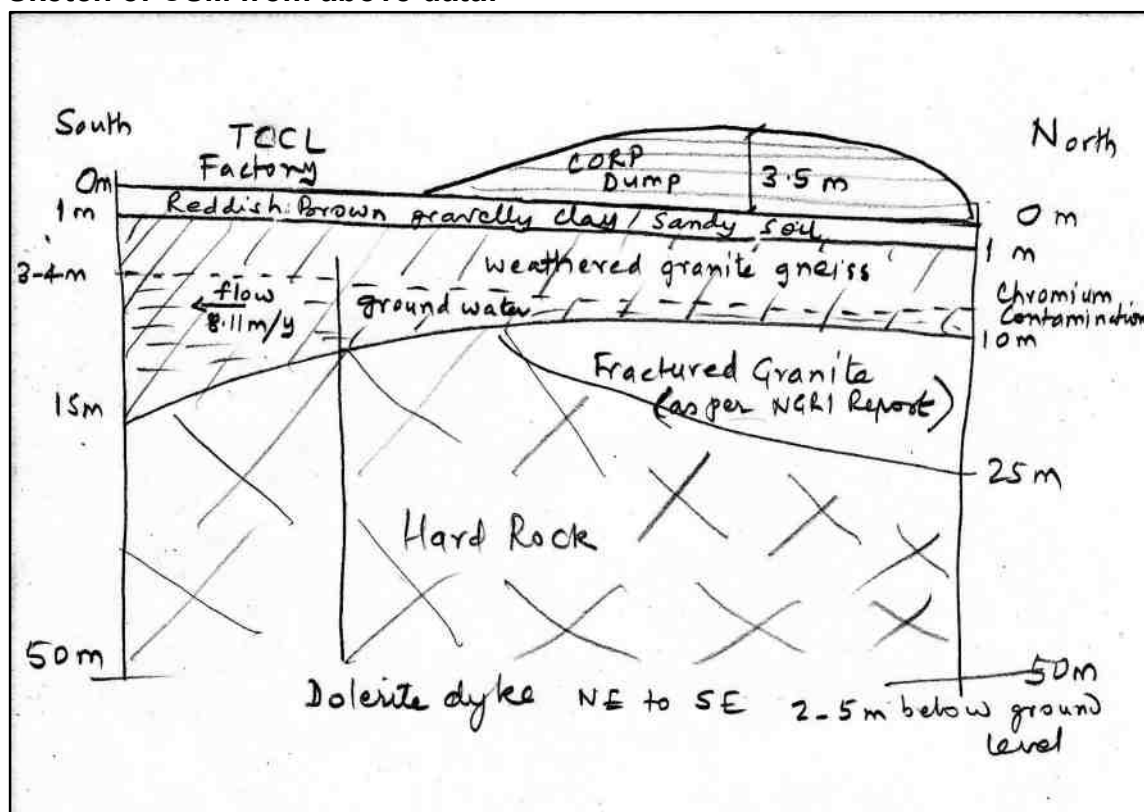 Sketch of CSM from above data:
South
TCCL
Factory
CORP
DUMP
3.5 m
North
0m
0 m
1 m
Reddish Brown gravelly clay / Sandy Soil
1 m
3-4 m
weathered granite gneiss
flow
8.11m/y
ground water
Chromium
Contamination
10m
Fractured Granite
(as per NGRI Report)
15m
25 m
Hard Rock
50m
50m
Dolerite dyke NE to SE 2-5m below ground
level